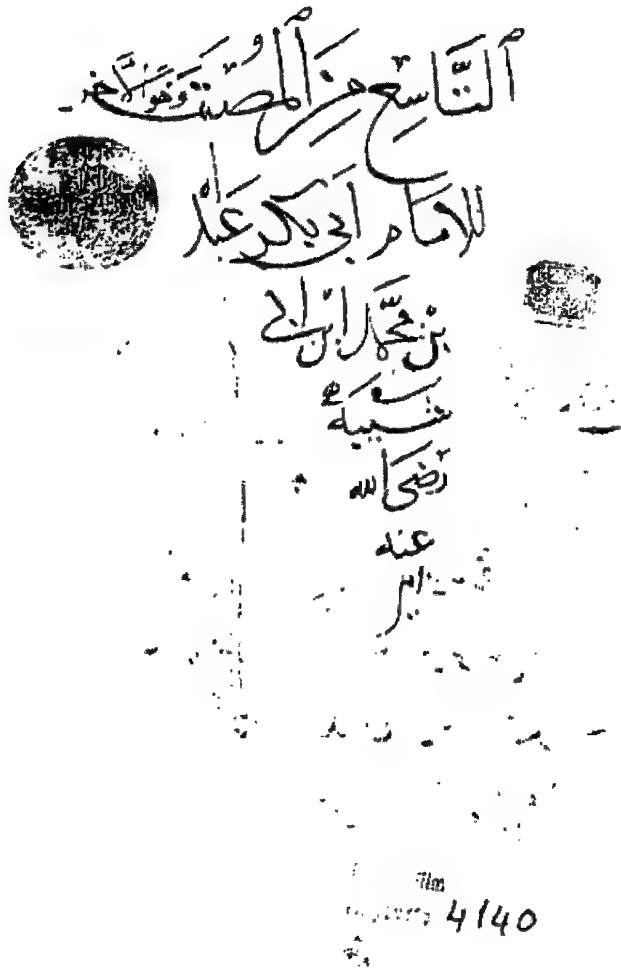 التَّاسِع مِنَ المُصَنَّف وَهُوَ الآخِر
للامَام أَبي بكر عَبد
بْن محمَّد ابْن ابي
شَيبَة
رَضيَ الله
عنه
4140